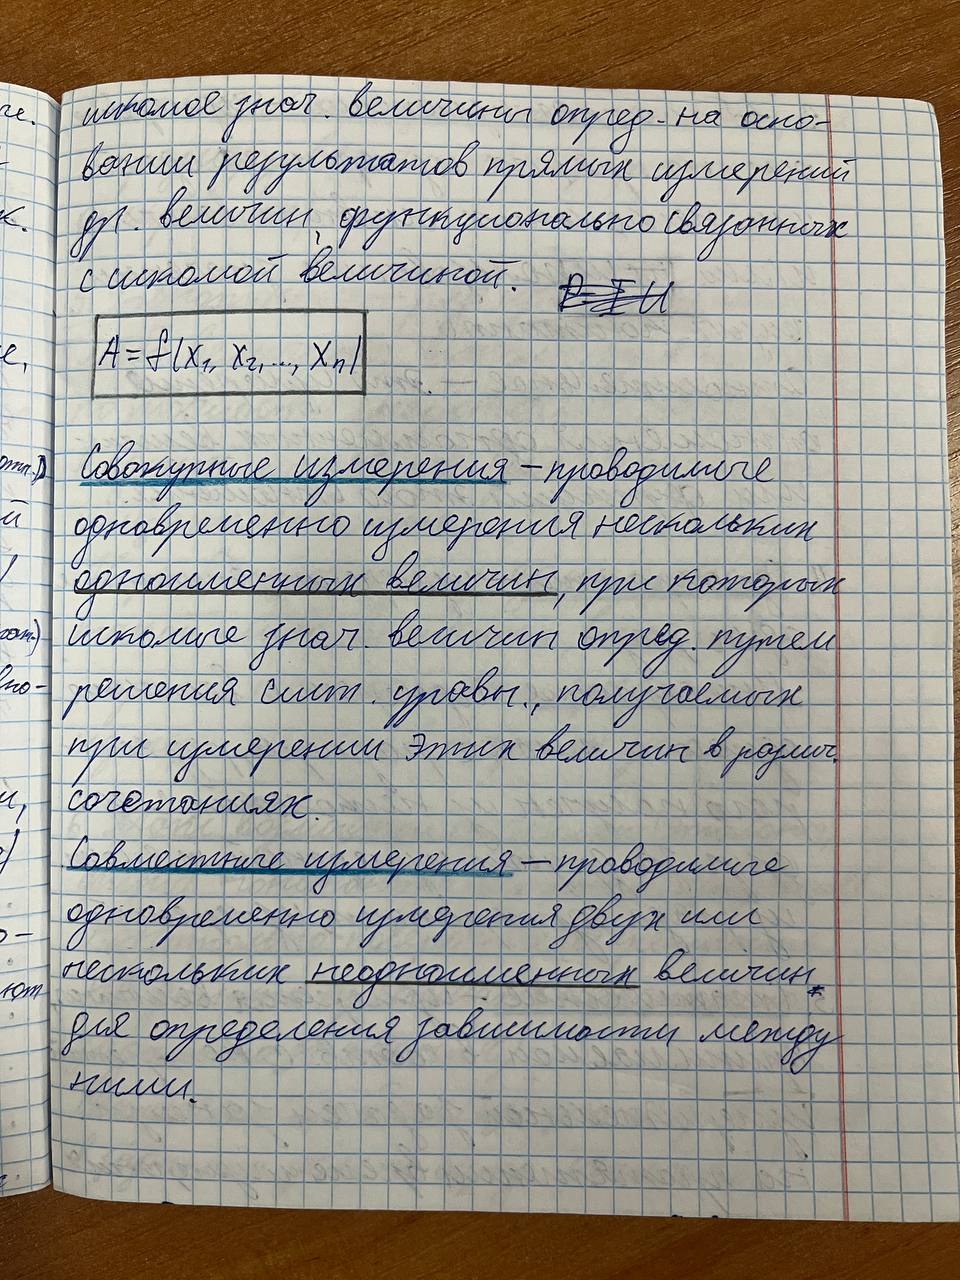 искомое знач. величины опред. на осно-
вании результатов прямых измерений
др. величин, функционально связанных
с искомой величиной.
A = f(x₁, x₂, ..., xₙ)
Совокупные измерения – проводимые
одновременно измерения нескольких
одноименных величин, при которых
искомые знач. величин опред. путем
решения сист. уравн., получаемых
при измерении этих величин в различ.
сочетаниях.
Совместные измерения – проводимые
одновременно измерения двух или
нескольких неодноименных величин
для определения зависимости между
ними.